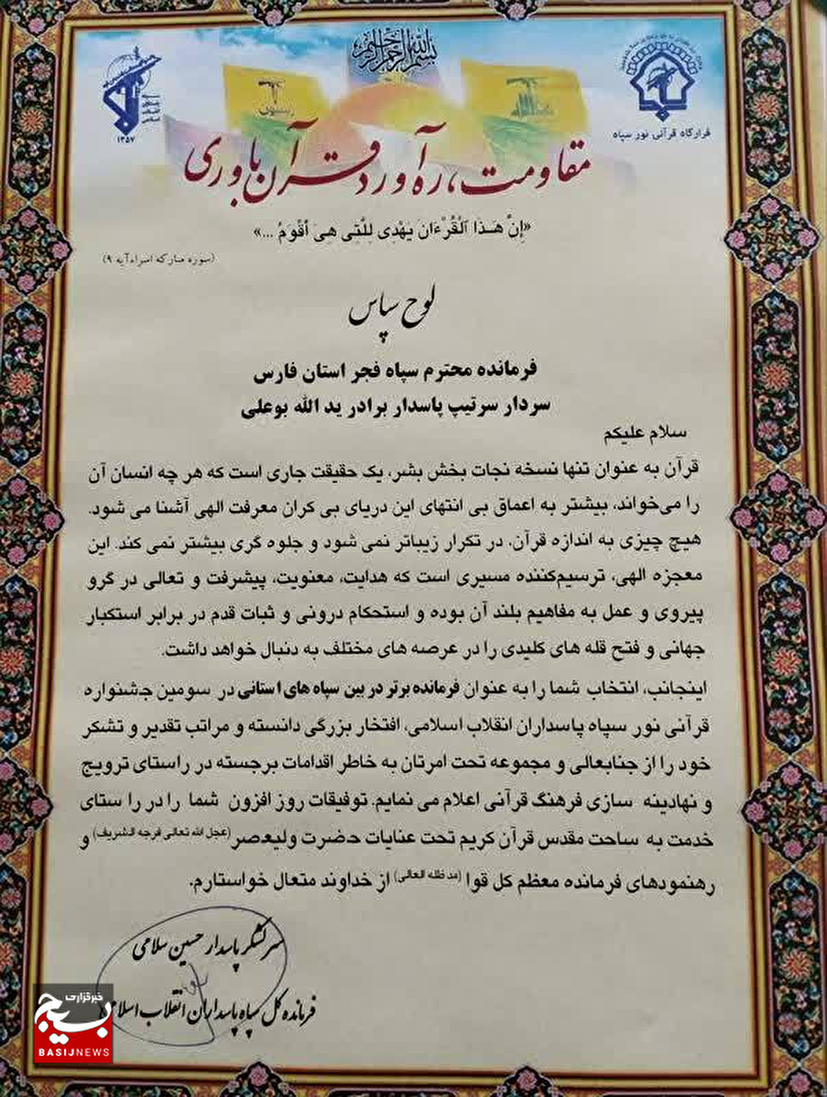 بسم الله الرحمن الرحیم
۱۳۵۷
قرارگاه قرآنی نور سپاه
مقاومت، ره‌آورد قرآن باوری
«إِنَّ هَـذَا الْقُرْءَانَ يَهْدِى لِلَّتِى هِىَ أَقْوَمُ ...»
(سوره مبارکه اسراء آیه ۹)
لوح سپاس
فرمانده محترم سپاه فجر استان فارس
سردار سرتیپ پاسدار برادر ید الله بوعلی
سلام علیکم
قرآن به عنوان تنها نسخه نجات بخش بشر، یک حقیقت جاری است که هر چه انسان آن
را می‌خواند، بیشتر به اعماق بی انتهای این دریای بی کران معرفت الهی آشنا می شود.
هیچ چیزی به اندازه قرآن، در تکرار زیباتر نمی شود و جلوه گری بیشتر نمی کند. این
معجزه الهی، ترسیم‌کننده مسیری است که هدایت، معنویت، پیشرفت و تعالی در گرو
پیروی و عمل به مفاهیم بلند آن بوده و استحکام درونی و ثبات قدم در برابر استکبار
جهانی و فتح قله های کلیدی را در عرصه های مختلف به دنبال خواهد داشت.
اینجانب، انتخاب شما را به عنوان فرمانده برتر در بین سپاه های استانی در سومین جشنواره
قرآنی نور سپاه پاسداران انقلاب اسلامی، افتخار بزرگی دانسته و مراتب تقدیر و تشکر
خود را از جنابعالی و مجموعه تحت امرتان به خاطر اقدامات برجسته در راستای ترویج
و نهادینه سازی فرهنگ قرآنی اعلام می نمایم. توفیقات روز افزون شما را در را ستای
خدمت به ساحت مقدس قرآن کریم تحت عنایات حضرت ولیعصر(عجل الله تعالی فرجه الشریف) و
رهنمودهای فرمانده معظم کل قوا (مد ظله العالی) از خداوند متعال خواستارم.
سرلشکر پاسدار حسین سلامی
فرمانده کل سپاه پاسداران انقلاب اسلامی
خبرگزاری
بسیج
BASIJNEWS